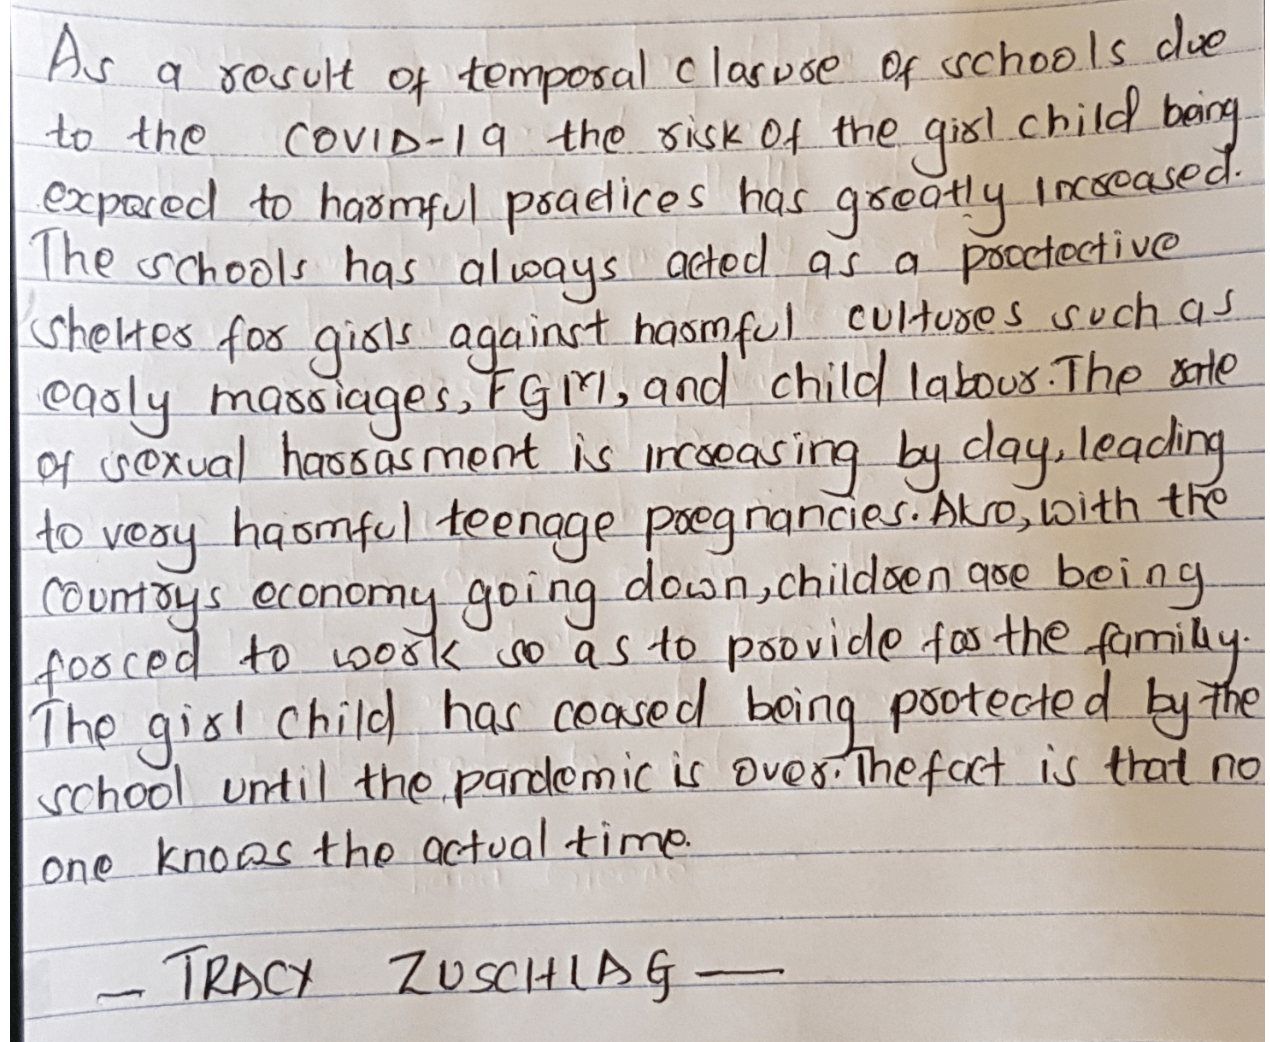 As a result of temporal clasure of schools due
to the COVID-19 the risk of the girl child being
exposed to harmful practices has greatly increased.
The schools has always acted as a proctective
shelter for girls against harmful cultures such as
early marriages, FGM, and child labour. The rate
of sexual harrasment is increasing by day, leading
to very harmful teenage pregnancies. Also, with the
countrys economy going down, children are being
forced to work so as to provide for the family.
The girl child has ceased being protected by the
school until the pandemic is over. The fact is that no
one knows the actual time.
- TRACY ZUSCHLAG -